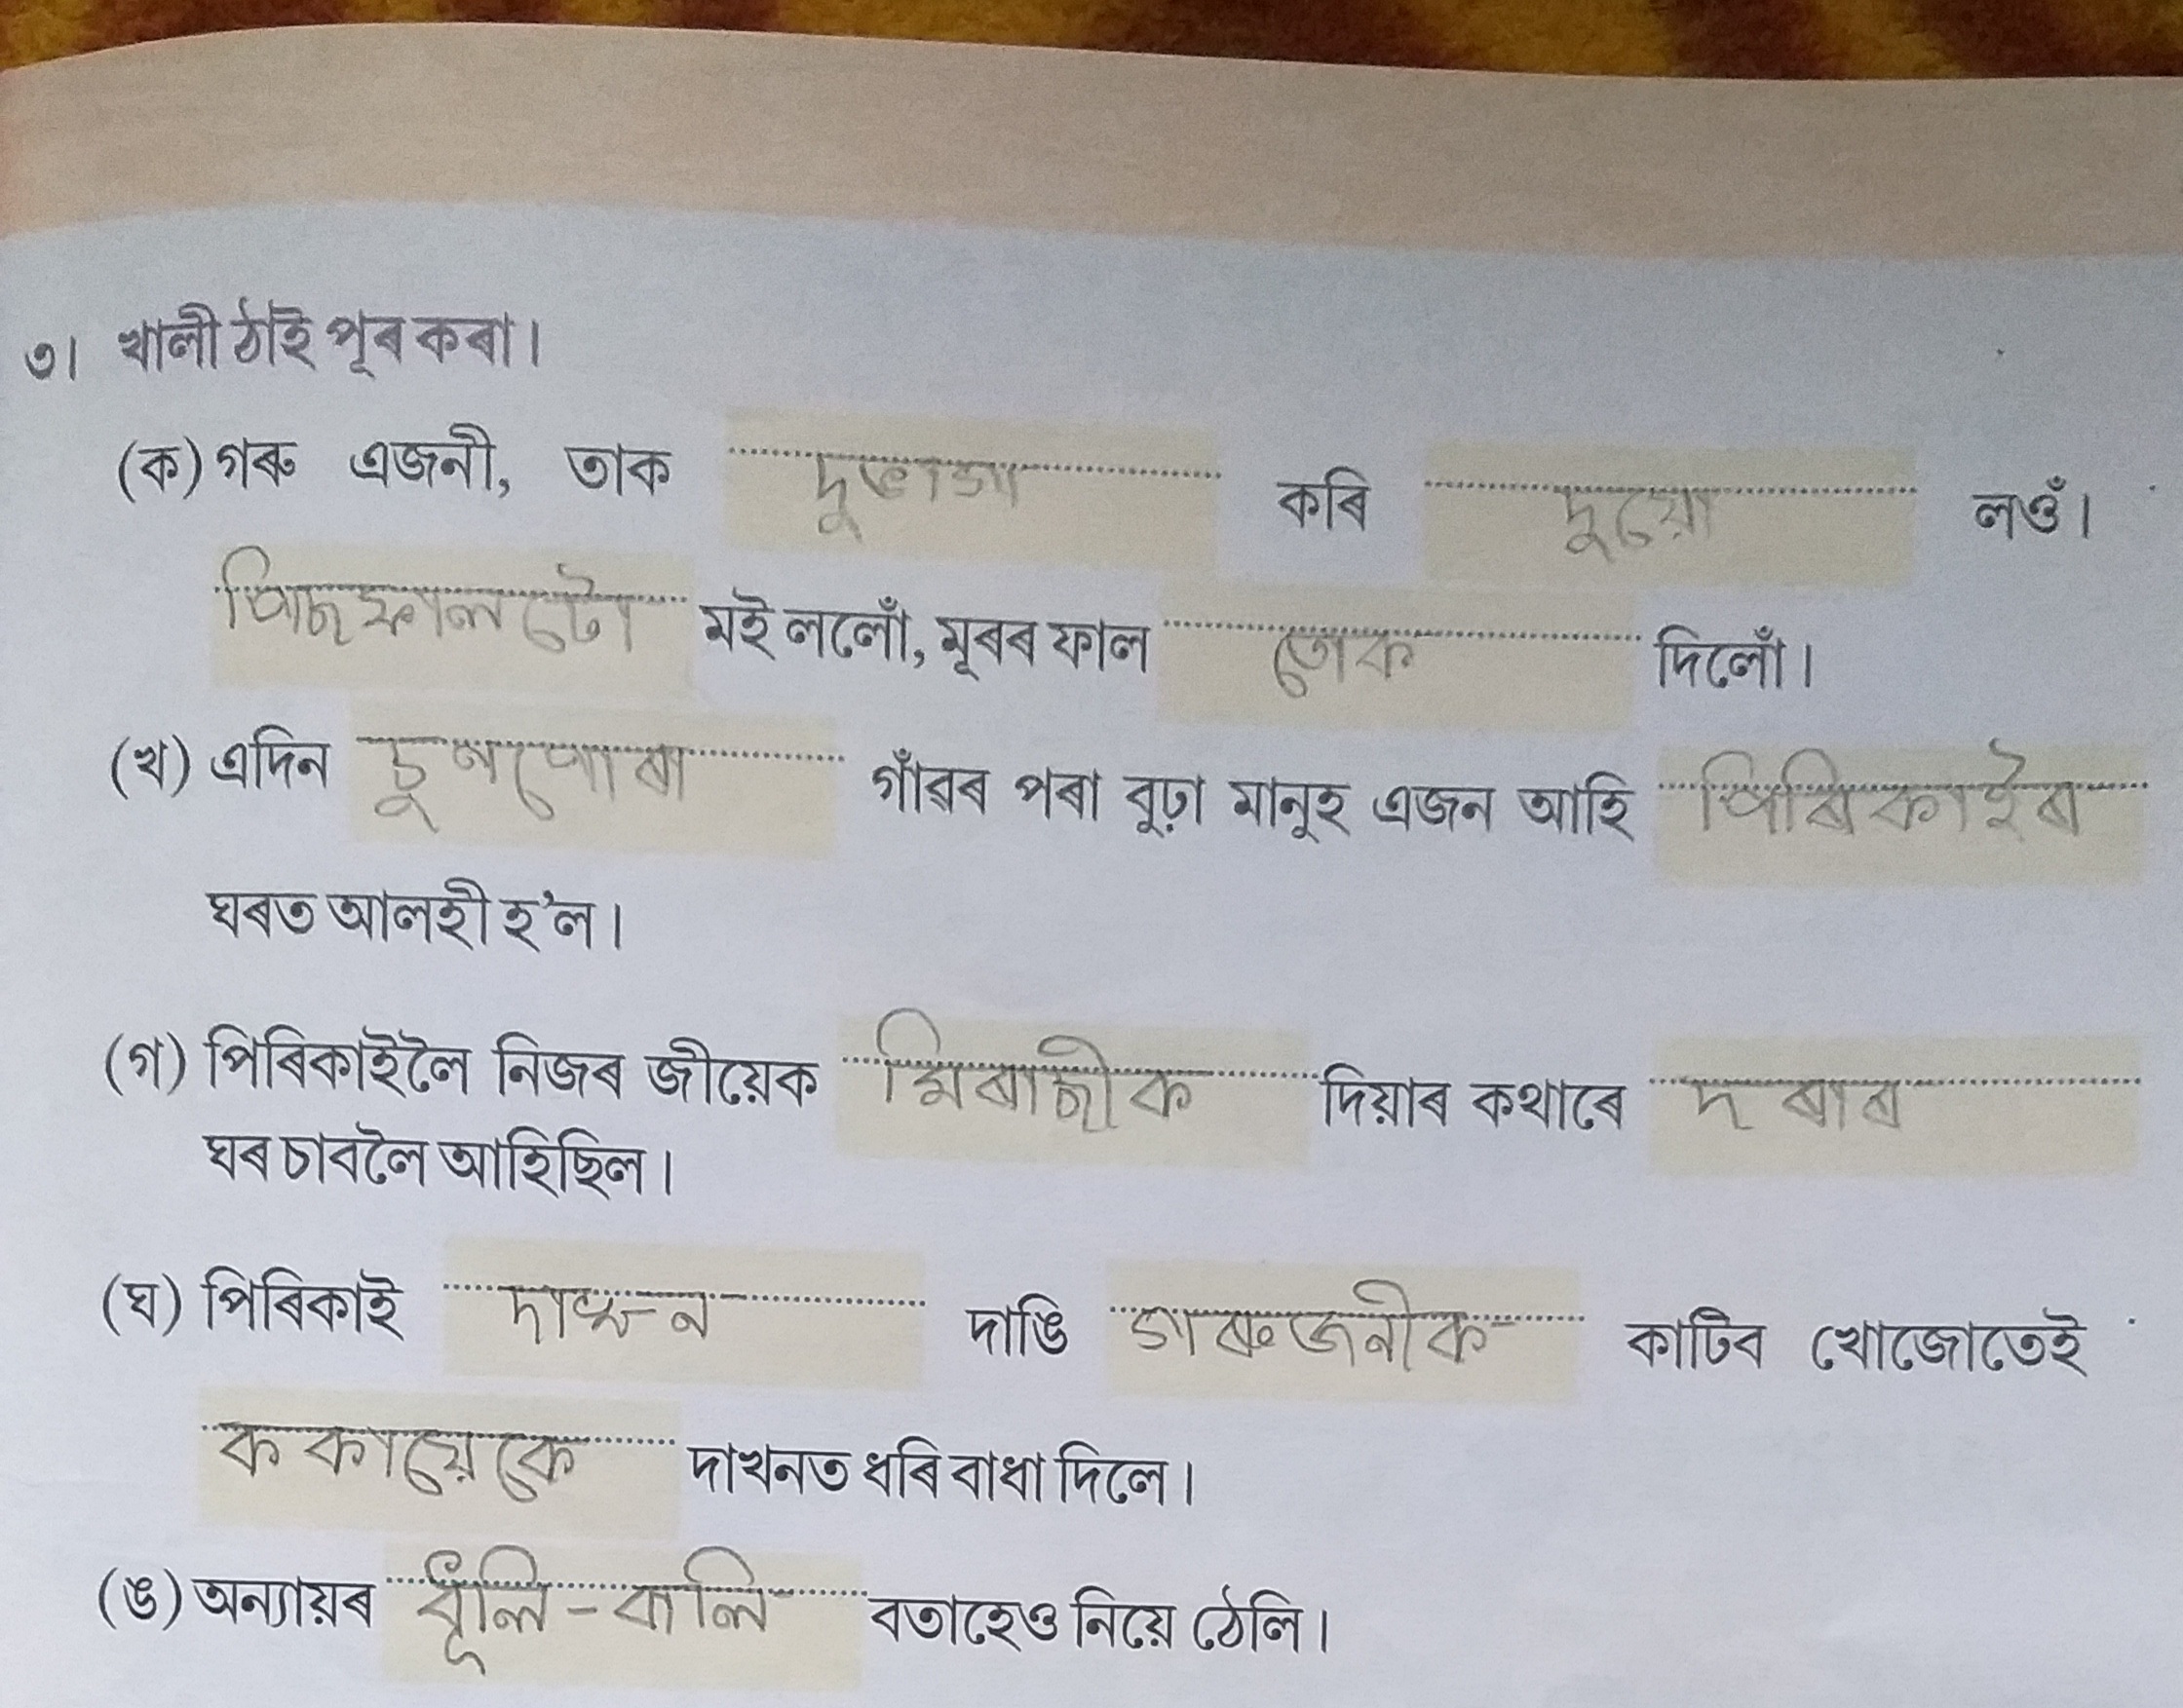 ৩। খালী ঠাই পূৰ কৰা।
(ক) গৰু এজনী, তাক দুভাগ কৰি দুয়ো লওঁ।
পিছফালটো মই ললোঁ, মূৰৰ ফাল তোক দিলোঁ।
(খ) এদিন চুণপোৰা গাঁৱৰ পৰা বুঢ়া মানুহ এজন আহি পিৰিকাইৰ
ঘৰত আলহী হ’ল।
(গ) পিৰিকাইলৈ নিজৰ জীয়েক মিৰাজীক দিয়াৰ কথাৰে দৰাৰ
ঘৰ চাবলৈ আহিছিল।
(ঘ) পিৰিকাই দাখন দাঙি গৰুজনীক কাটিব খোজোতেই
ককায়েকে দাখনত ধৰি বাধা দিলে।
(ঙ) অন্যায়ৰ ধূলি-বালি বতাহেও নিয়ে ঠেলি।